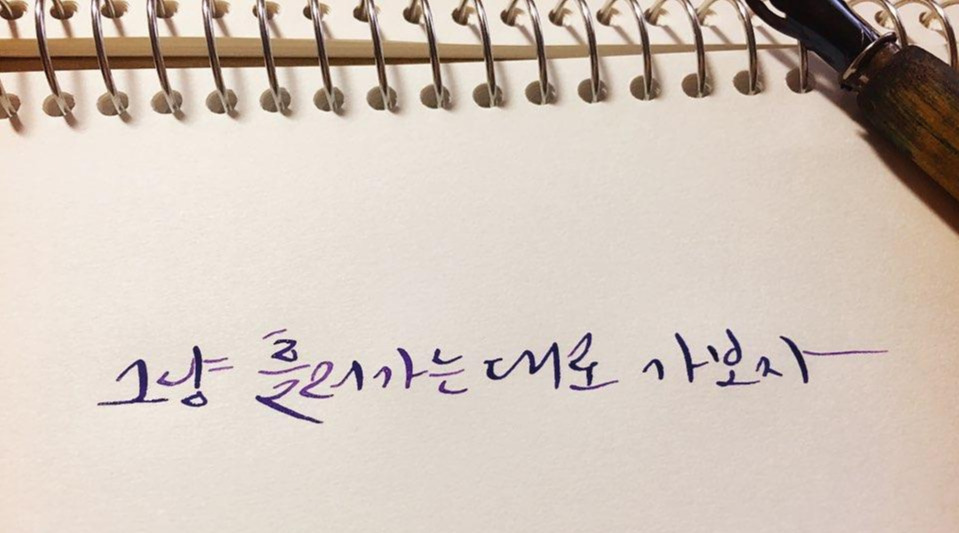 그냥 흘러가는대로 가보자